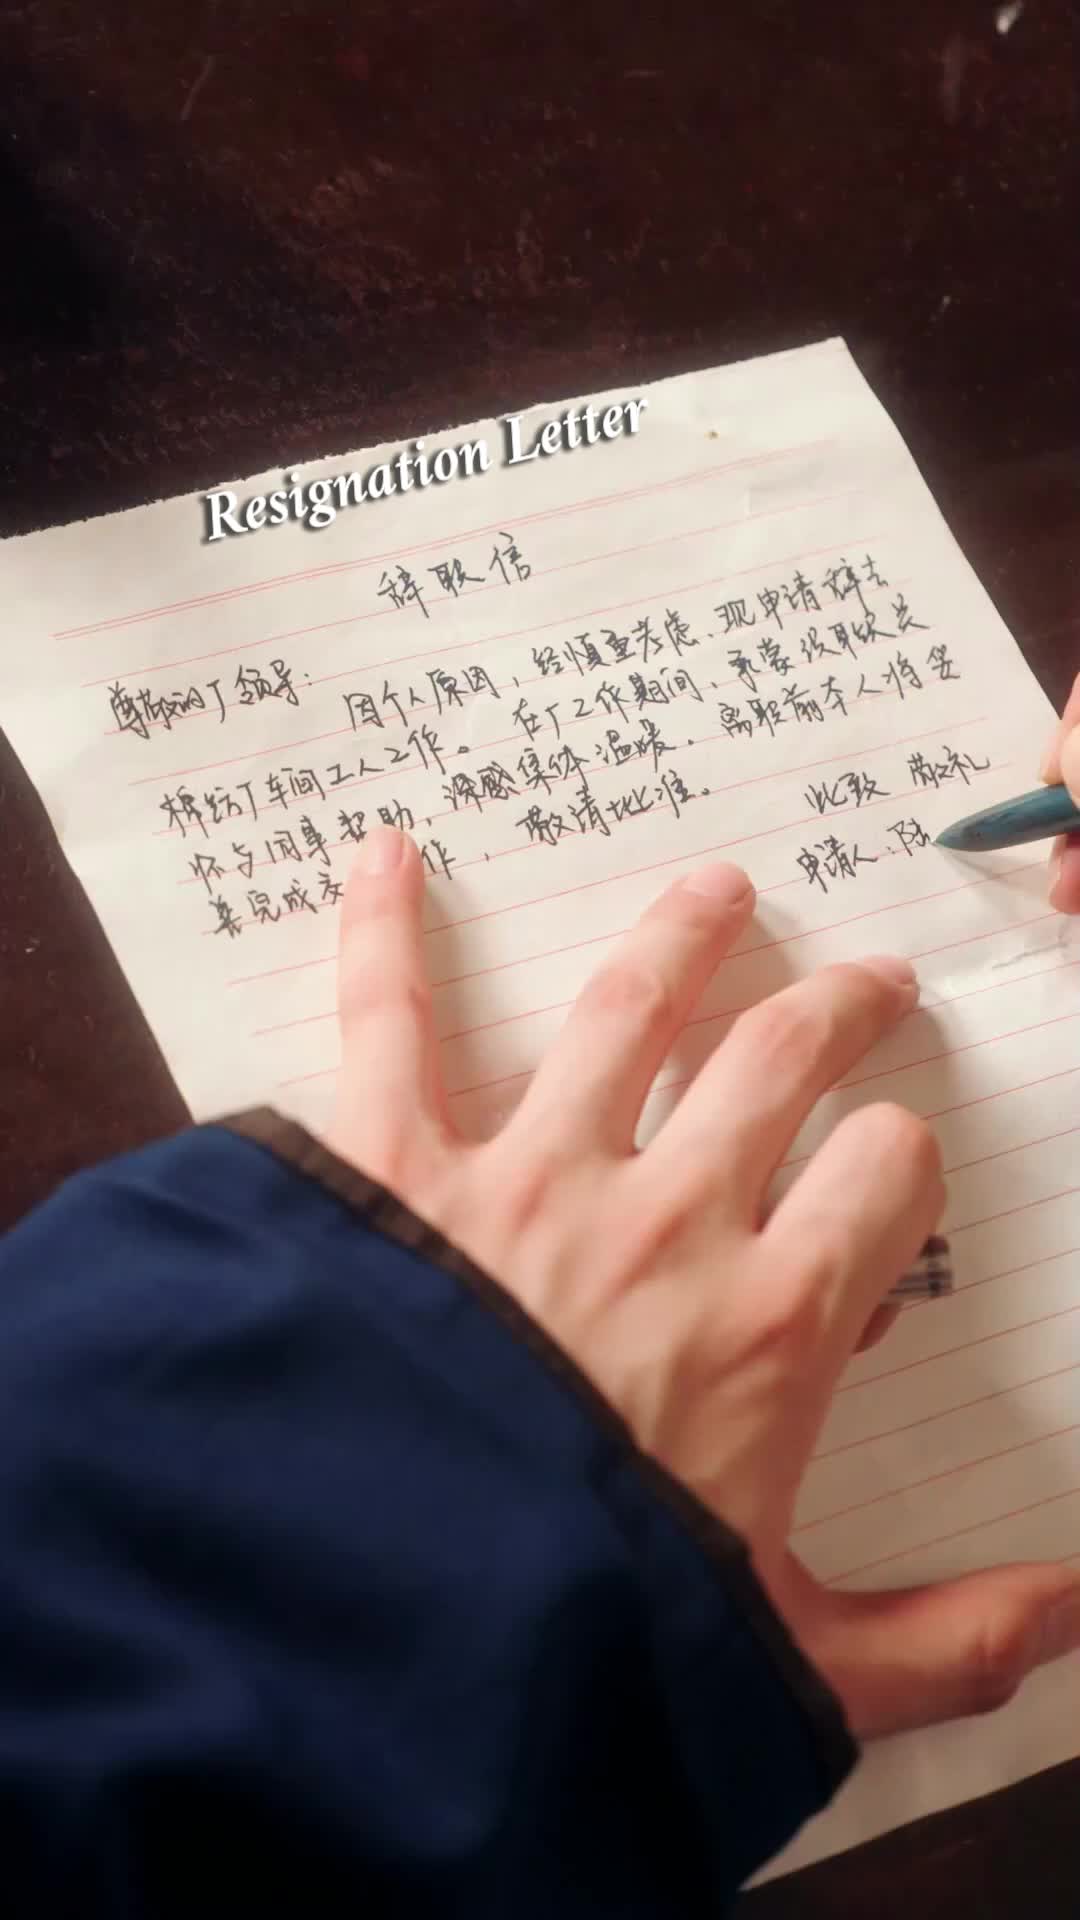 Resignation Letter
辞职信
尊敬的厂领导：
因个人原因，经慎重考虑、现申请辞去
棉纺厂车间工人工作。在厂工作期间、承蒙领导关
怀与同事帮助，深感集体温暖。离职前本人将妥
善完成交 作，敬请批准。
此致 敬礼
申请人：陆